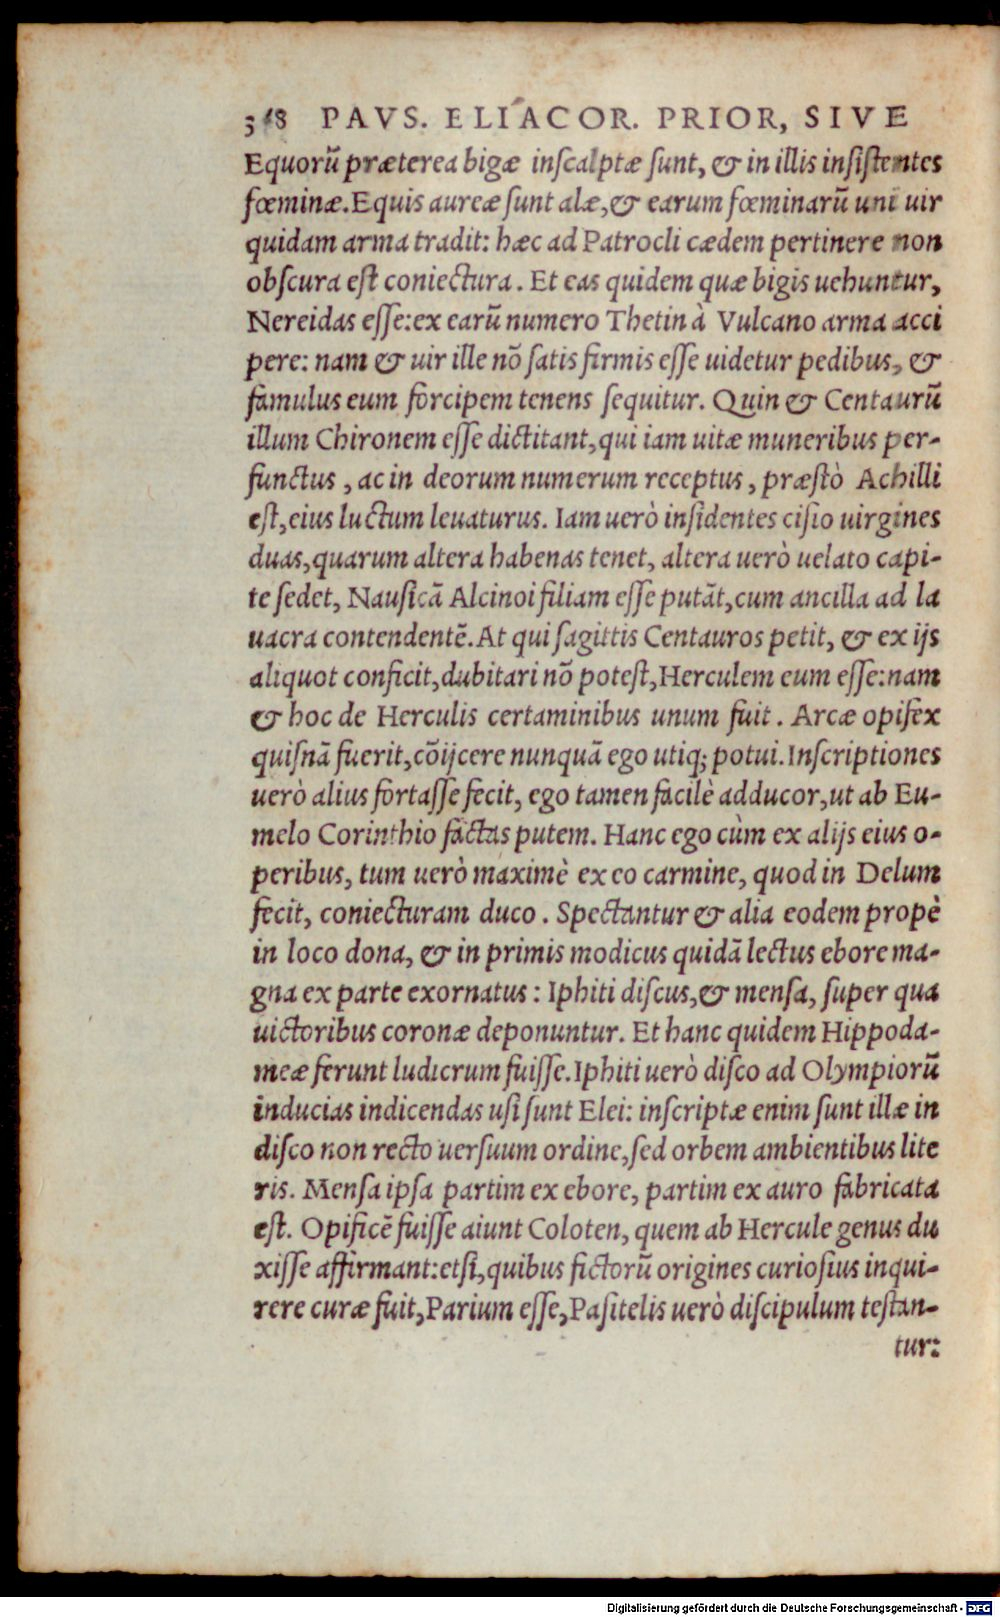 PAVS. ELIACOR. PRIOR, SIVE
Equorũ præterea bigæ inſcalptæ ſunt, & in illis inſiſtentes
fœminæ. Equis aureæ ſunt alæ, & earum fœminarũ uni uir
quidam arma tradit: hæc ad Patrocli cædem pertinere non
obſcura eſt coniectura. Et eas quidem quæ bigis uehuntur,
Nereidas eſſe: ex earũ numero Thetin à Vulcano arma acci
pere: nam & uir ille nõ ſatis firmis eſſe uidetur pedibus, &
famulus eum forcipem tenens ſequitur. Quin & Centaurũ
illum Chironem eſſe dictitant, qui iam uitæ muneribus per-
functus, ac in deorum numerum receptus, præſtò Achilli
eſt, eius luctum leuaturus. Iam uerò inſidentes ciſio uirgines
duas, quarum altera habenas tenet, altera uerò uelato capi-
te ſedet, Nauſicã Alcinoi filiam eſſe putãt, cum ancilla ad la
uacra contendentẽ. At qui ſagittis Centauros petit, & ex ijs
aliquot conficit, dubitari nõ poteſt, Herculem eum eſſe: nam
& hoc de Herculis certaminibus unum fuit. Arcæ opifex
quiſnã fuerit, cõijcere nunquã ego utiq; potui. Inſcriptiones
uerò alius fortaſſe fecit, ego tamen facilè adducor, ut ab Eu-
melo Corinthio factas putem. Hanc ego cùm ex alijs eius o-
peribus, tum uerò maximè ex eo carmine, quod in Delum
fecit, coniecturam duco. Spectantur & alia eodem propè
in loco dona, & in primis modicus quidã lectus ebore ma-
gna ex parte exornatus: Iphiti diſcus, & menſa, ſuper qua
uictoribus coronæ deponuntur. Et hanc quidem Hippoda-
meæ ferunt ludicrum fuiſſe. Iphiti uerò diſco ad Olympiorũ
inducias indicendas uſi ſunt Elei: inſcriptæ enim ſunt illæ in
diſco non recto uerſuum ordine, ſed orbem ambientibus lite
ris. Menſa ipſa partim ex ebore, partim ex auro fabricata
eſt. Opificẽ fuiſſe aiunt Coloten, quem ab Hercule genus du
xiſſe affirmant: etſi, quibus fictorũ origines curioſius inqui-
rere curæ fuit, Parium eſſe, Paſitelis uerò diſcipulum teſtan-
tur:
Digitalisierung gefördert durch die Deutsche Forschungsgemeinschaft - DFG